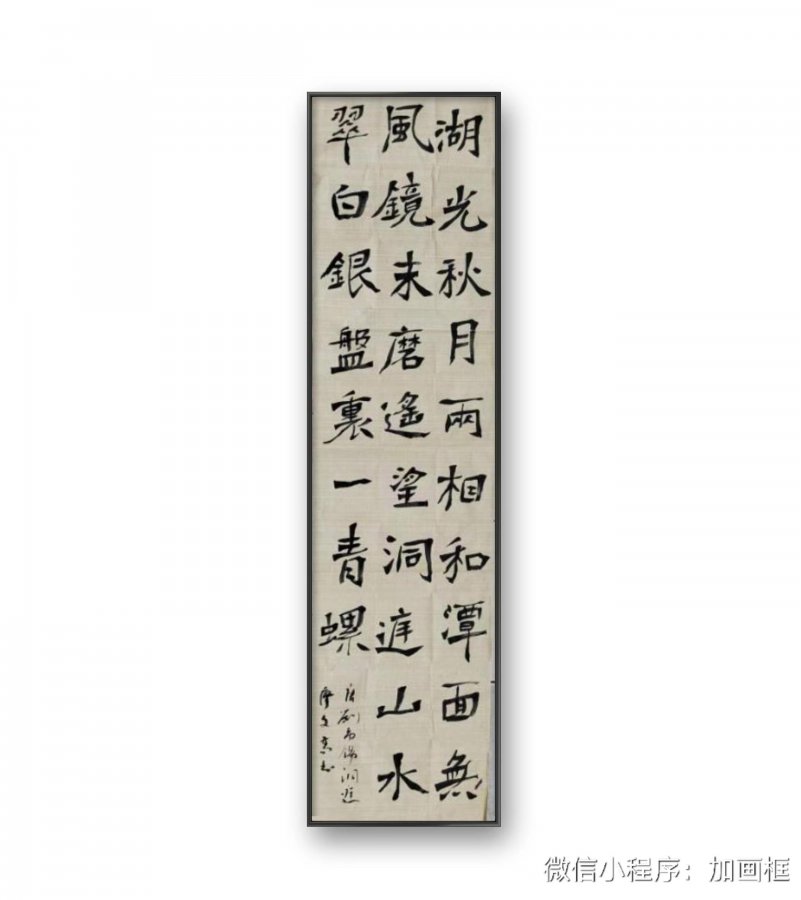 湖光秋月兩相和潭面無
風鏡未磨遙望洞庭山水
翠白銀盤裏一青螺
唐劉禹錫洞庭
微信小程序：加画框